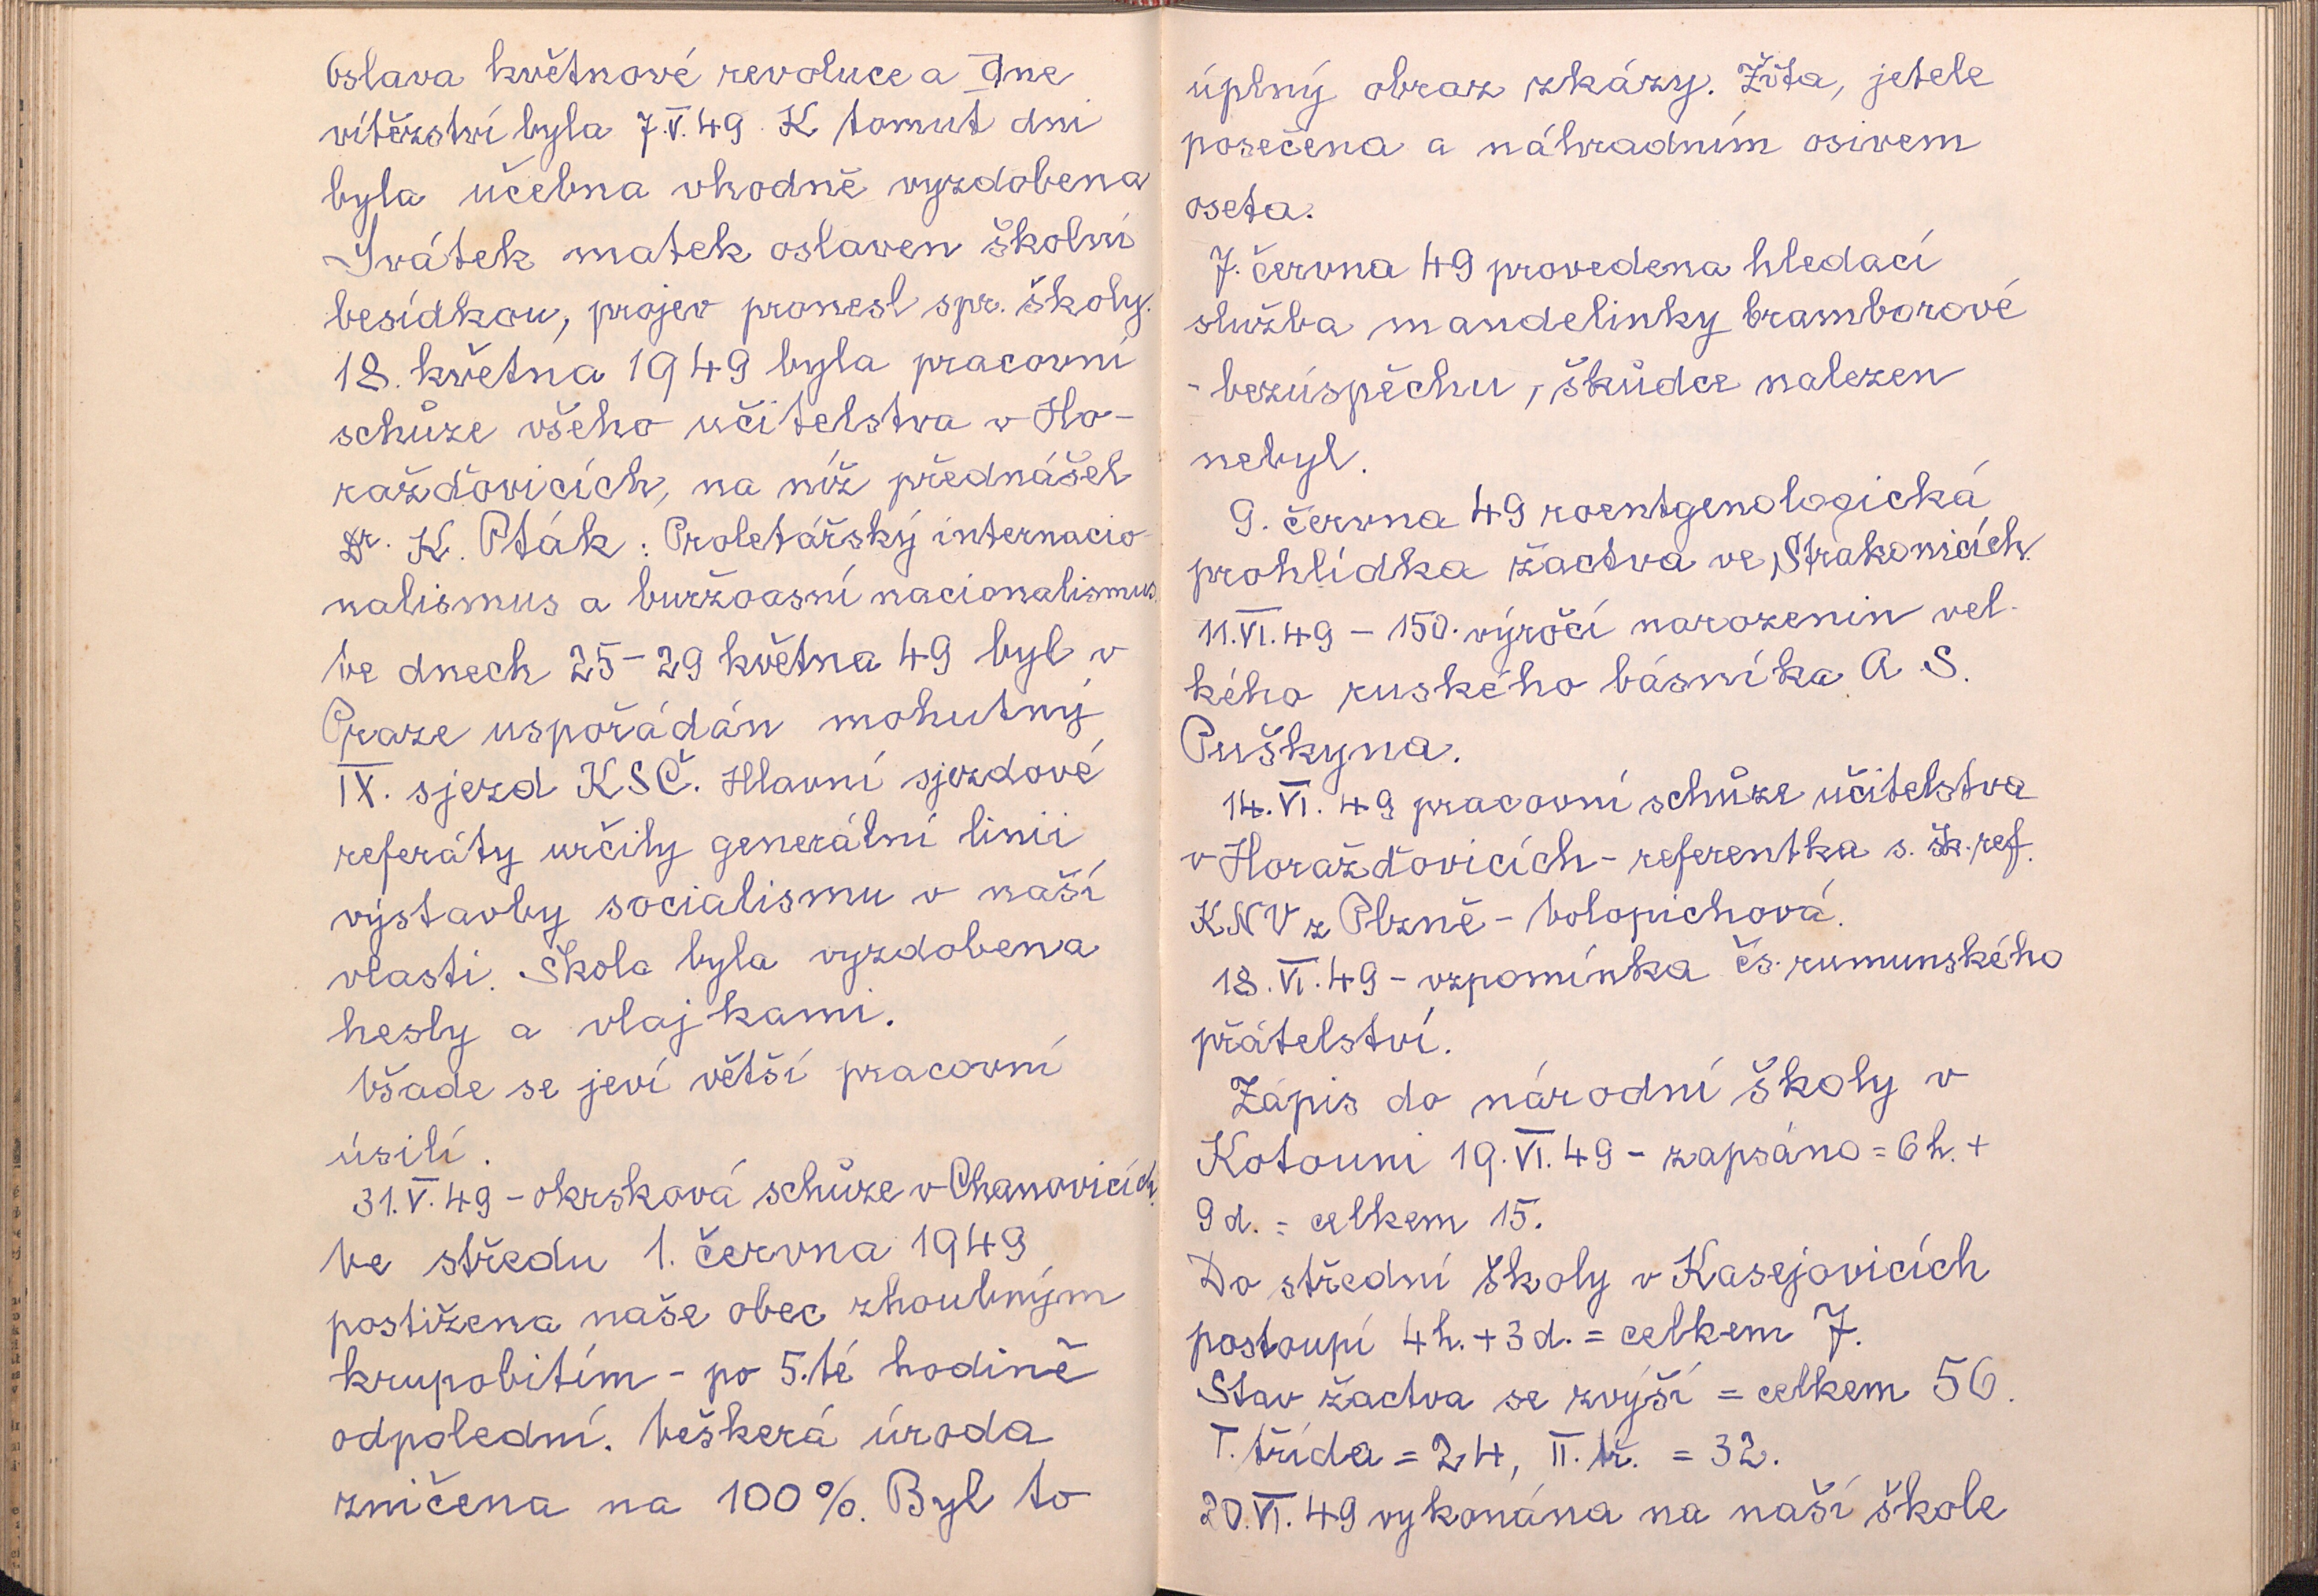 Oslava květnové revoluce a Dne
vítězství byla 7.V.49. K tomut dni
byla učebna vhodně vyzdobena
Svátek matek oslaven školní
besídkou, projev pronesl spr. školy.
18. května 1949 byla pracovní
schůze všeho učitelstva v Ho-
ražďovicích, na níž přednášel
Dr. K. Pták: Proletářský internacio-
nalismus a buržoasní nacionalismus.
Ve dnech 25-29 května 49 byl v
Praze uspořádán mohutný
IX. sjezd KSČ. Hlavní sjezdové
referáty určily generální linii
výstavby socialismu v naší
vlasti. Škola byla vyzdobena
hesly a vlajkami.
Všade se jeví větší pracovní
úsilí.
31.V.49 - okrsková schůze v Chanovicích.
Ve středu 1. června 1949
postižena naše obec zhoubným
krupobitím - po 5.té hodině
odpolední. Veškerá úroda
zničena na 100%. Byl to
úplný obraz zkázy. Žita, jetele
posečena a náhradním osivem
oseta.
7. června 49 provedena hledací
služba mandelinky bramborové
- bezúspěchu, škůdce nalezen
nebyl.
9. června 49 roentgenologická
prohlídka žactva ve Strakonicích.
11.VI.49 - 150. výročí narozenin vel-
kého ruského básníka A S.
Puškyna.
14.VI.49 pracovní schůze učitelstva
v Horažďovicích - referentka s. šk. ref.
KNV z Plzně - Volopichová.
18.VI.49 - vzpomínka čs. rumunského
přátelství.
Zápis do národní školy v
Kotouni 19.VI.49 - zapsáno = 6 h. +
9 d. = celkem 15.
Do střední školy v Kasejovicích
postoupí 4 h. + 3 d. = celkem 7.
Stav žactva se zvýší = celkem 56.
I. třída = 24, II. tř. = 32.
20.VI.49 vykonána na naší škole